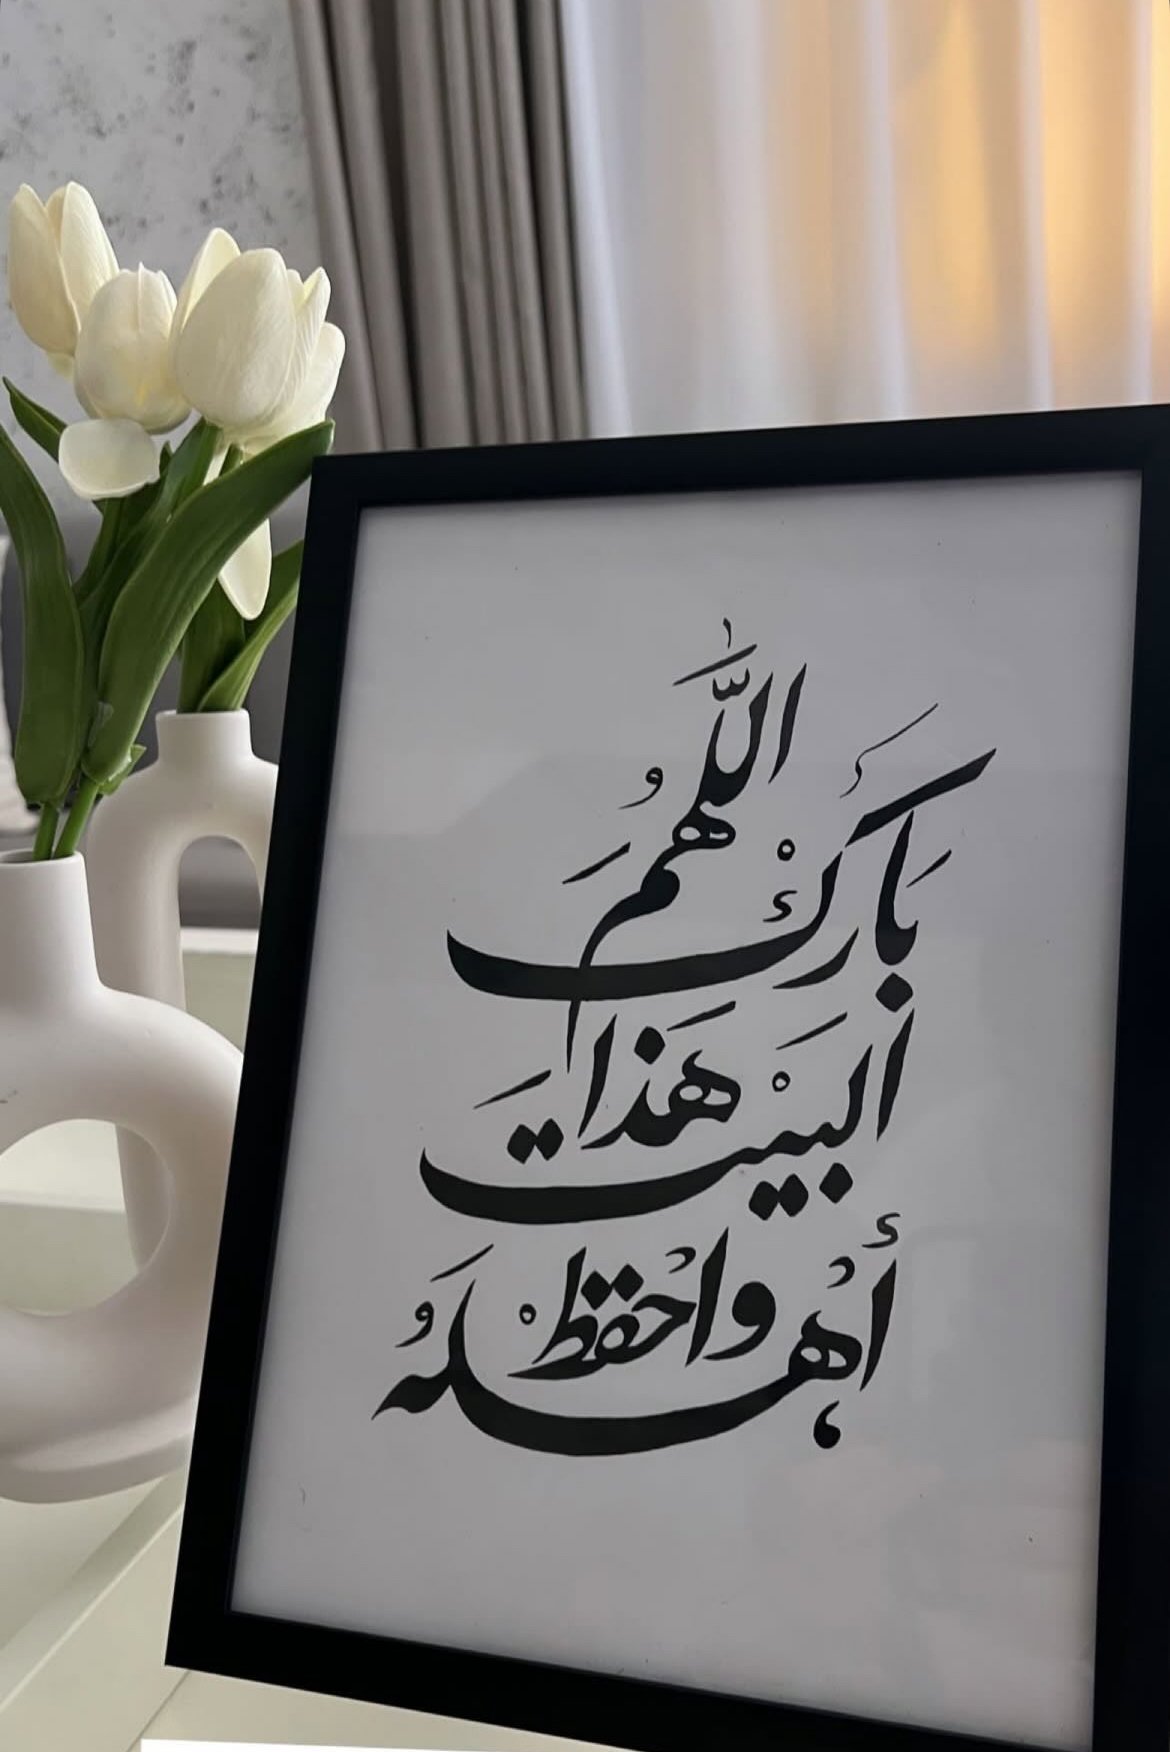 اللَّهُمَ
بَاركْ
هَذا
البَيْتَ
واحْفظْ
أهْلَهُ